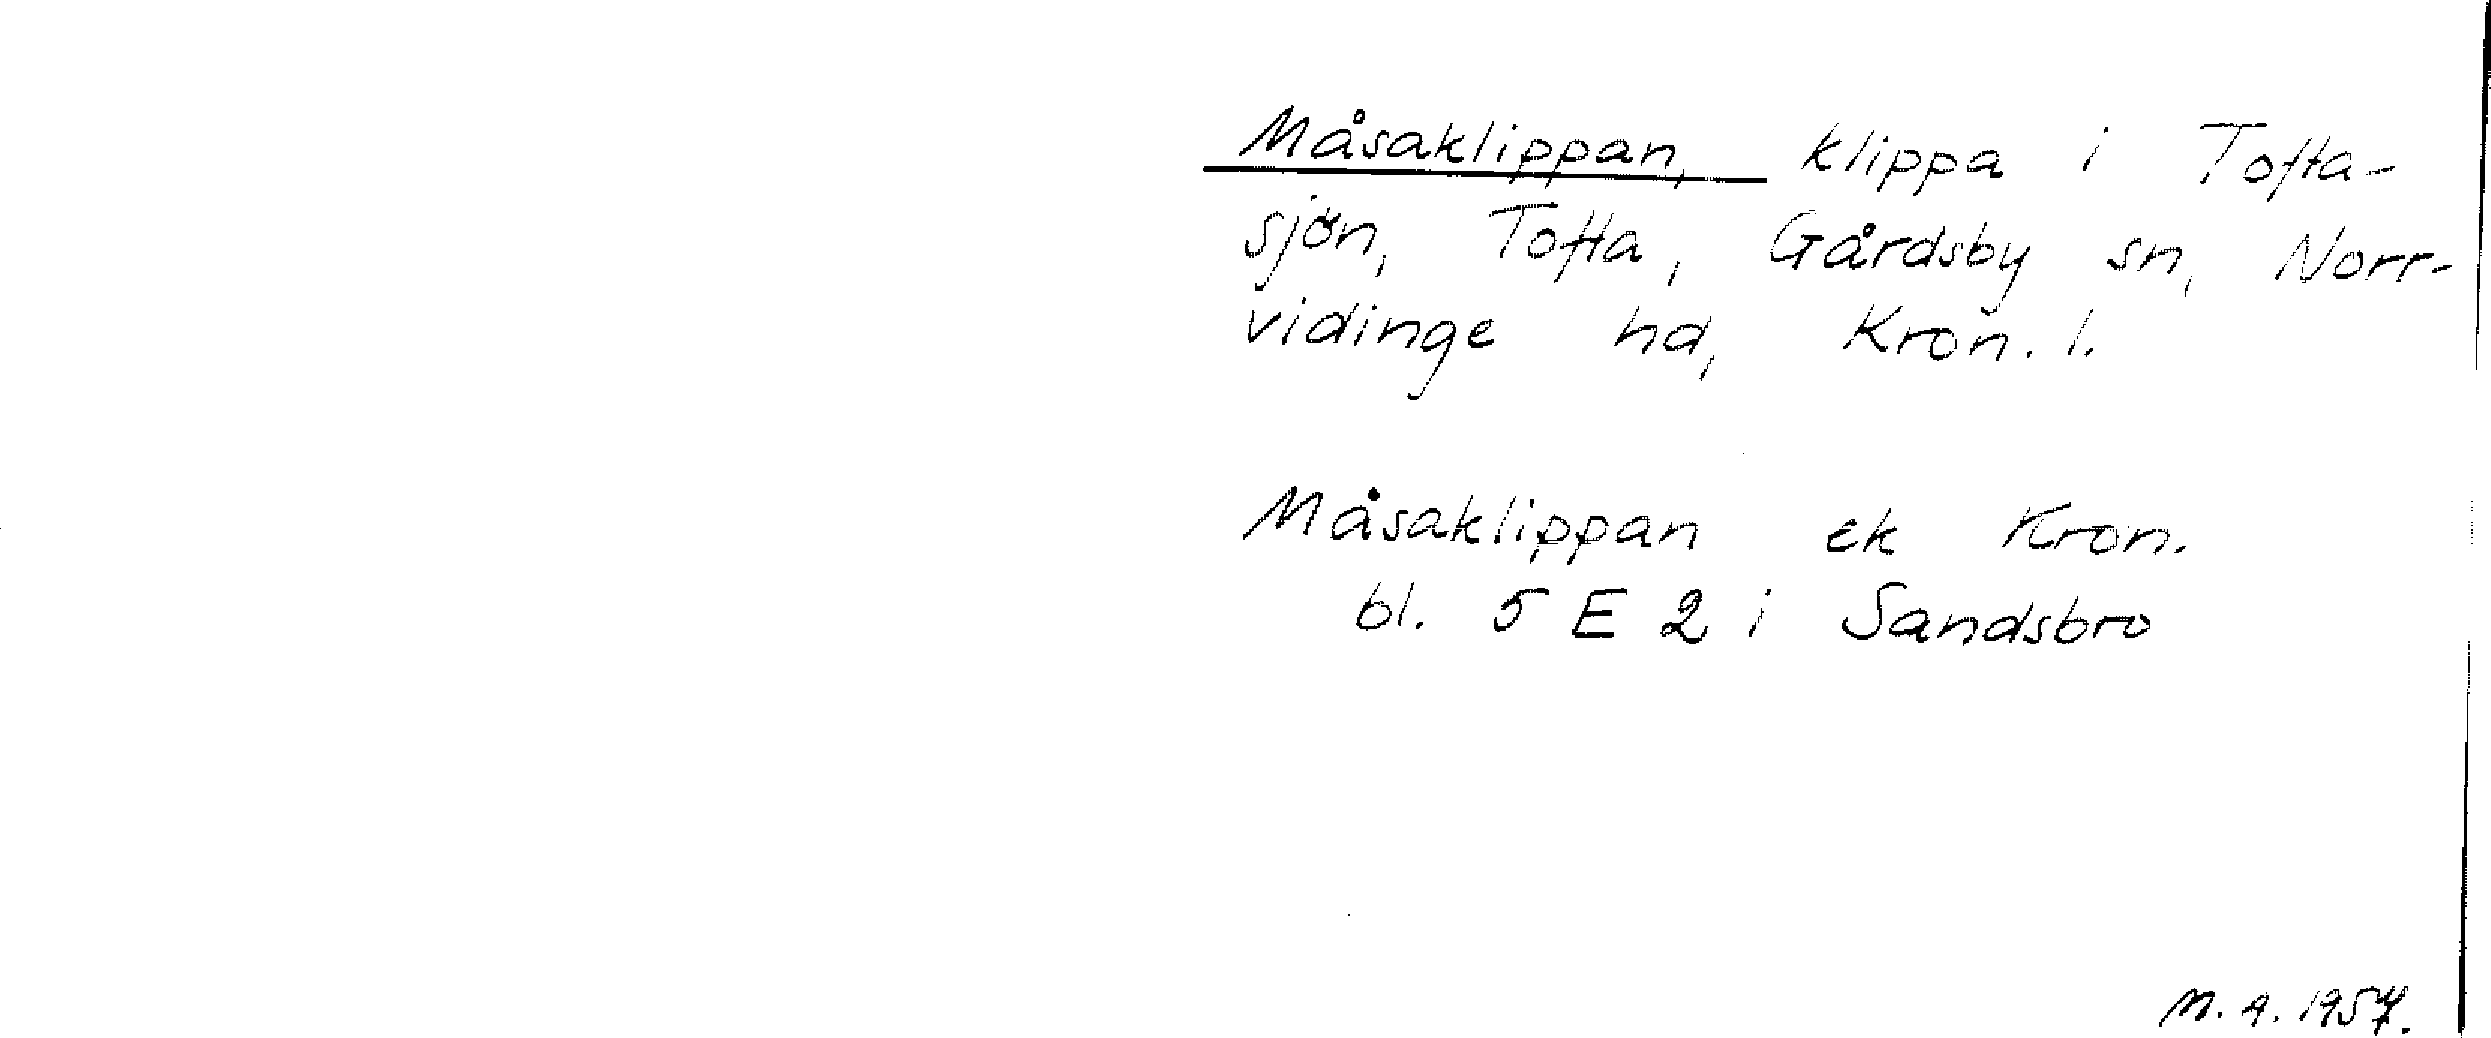 Måsaklippan, klippa i Tofta-
sjön, Tofta, Gårdsby sn, Norr-
vidinge hd, Kron. l.
Måsaklippan ek Kron.
bl. 5 E 2 i Sandsbro
M. A. 1957.